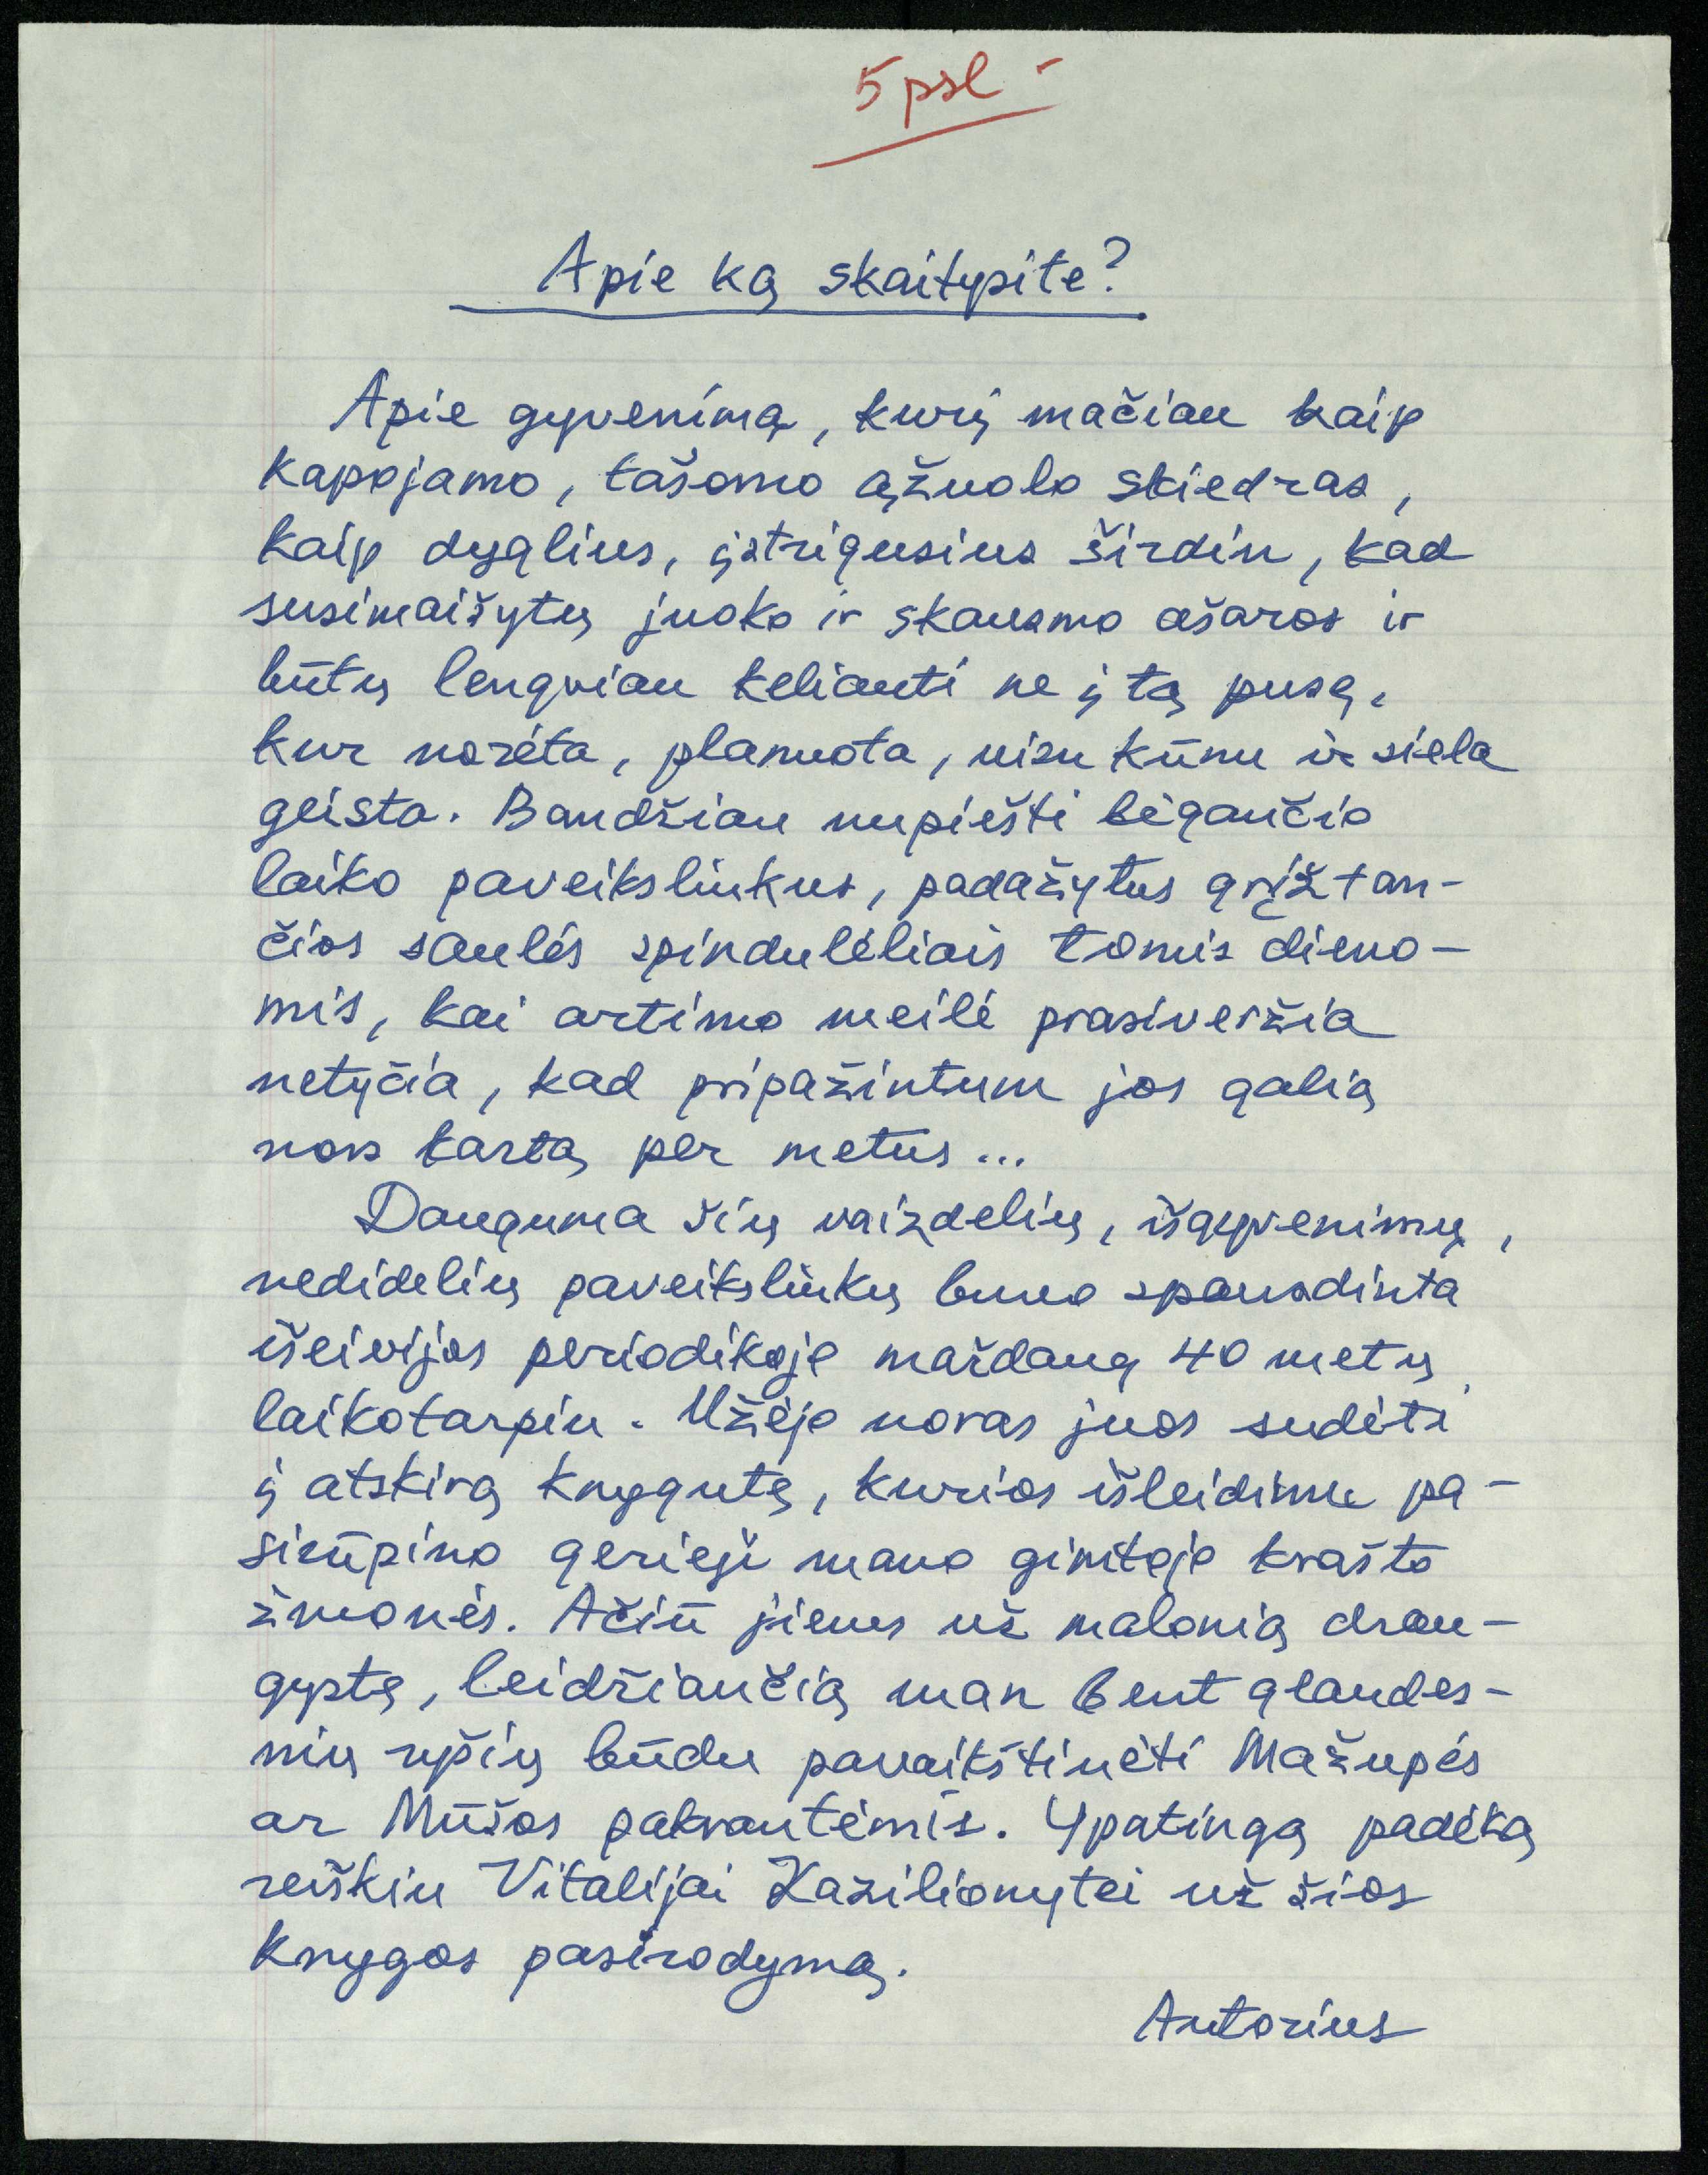 5 psl -
Apie ką skaitysite?
Apie gyvenimą, kurį mačiau kaip
kapojamo, tašomo ąžuolo skiedras,
kaip dyglius, įstrigusius širdin, kad
susimaišytų juoko ir skausmo ašaros ir
būtų lengviau keliauti ne į tą pusę,
kur norėta, planuota, visu kūnu ir siela
geista. Bandžiau nupiešti bėgančio
laiko paveiksliukus, padažytus grįžtan-
čios saulės spindulėliais tomis dieno-
mis, kai artimo meilė prasiveržia
netyčia, kad pripažintum jos galią
nors kartą per metus...
Dauguma šių vaizdelių, išgyvenimų,
nedidelių paveiksliukų buvo spausdinta
išeivijos periodikoje maždaug 40 metų
laikotarpiu. Užėjo noras juos sudėti
į atskirą knygutę, kurios išleidimu pa-
sirūpino gerieji mano gimtojo krašto
žmonės. Ačiū jiems už malonią drau-
gystę, leidžiančią man bent glaudes-
nių ryšių būdu pavaikštinėti Mažupės
ar Mūšos pakrantėmis. Ypatingą padėką
reiškiu Vitalijai Kazilionytei už šios
knygos pasirodymą.
Autorius